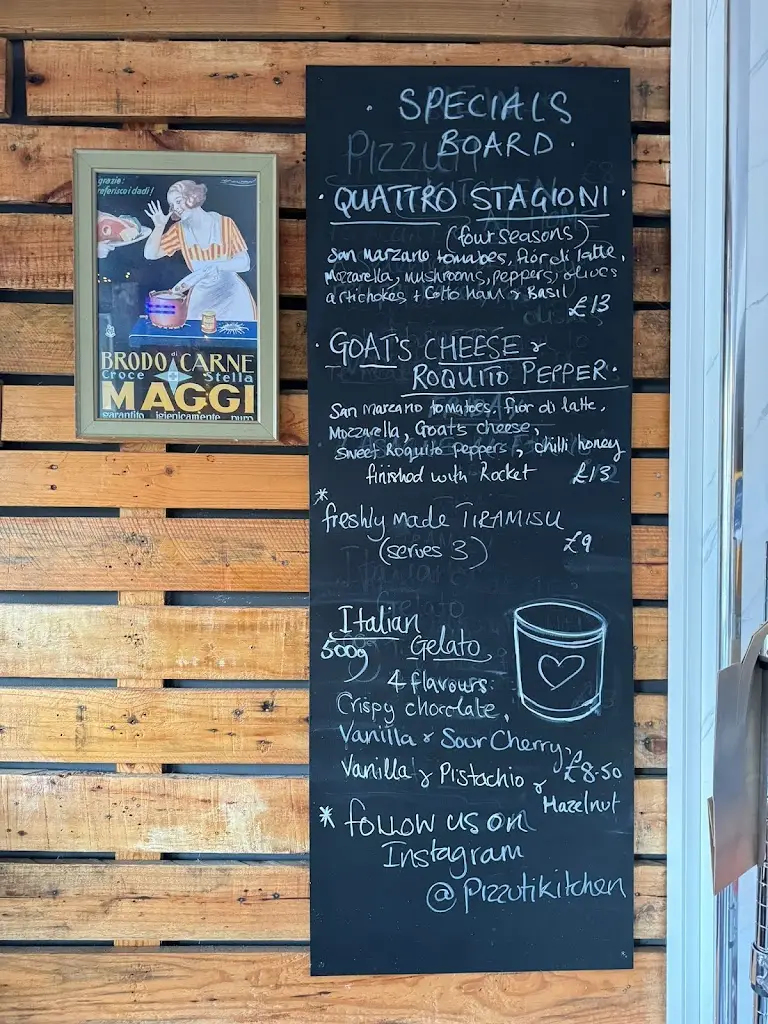 grazie:
referisco i dadi!
BRODO di CARNE
Croce Stella
MAGGI
garantito igienicamente puro
. SPECIALS
BOARD .
. QUATTRO STAGIONI .
(four seasons)
San Marzano tomatoes, fior di latte,
Mozzarella, Mushrooms, peppers, olives
artichokes + Cotto Ham & Basil
£13
. GOAT'S CHEESE &
ROQUITO PEPPER.
San Marzano tomatoes, fior di latte,
Mozzarella, Goat's cheese,
Sweet Roquito Peppers, chilli honey
finished with Rocket £13
*
freshly made TIRAMISU
(serves 3) £9
Italian
500g Gelato
4 flavours:
Crispy chocolate,
Vanilla & Sour Cherry,
Vanilla & Pistachio & £8.50
Hazelnut
* follow us on
Instagram
@Pizzutikitchen